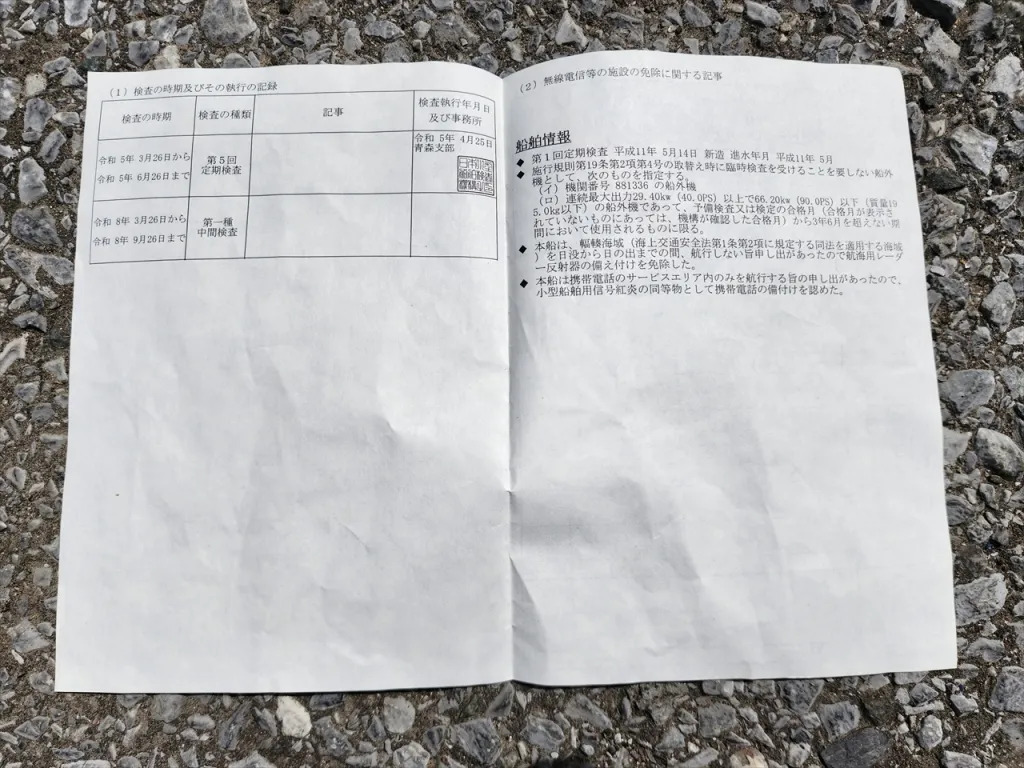 (1) 検査の時期及びその執行の記録
検査の時期 検査の種類 記事 検査執行年月日
及び事務所
令和 5年 3月26日から
令和 5年 6月26日まで
第５回
定期検査
令和 5年 4月25日
青森支部
令和 8年 3月26日から
令和 8年 9月26日まで
第一種
中間検査
(2) 無線電信等の施設の免除に関する記事
船舶情報
◆ 第１回定期検査 平成11年 5月14日 新造 進水年月 平成11年 5月
◆ 施行規則第19条第2項第4号の取替え時に臨時検査を受けることを要しない船外
機として、次のものを指定する。
(イ) 機関番号 881336 の船外機
(ロ) 連続最大出力29.40kw (40.0PS) 以上で66.20kw (90.0PS) 以下 (質量19
5.0kg以下) の船外機であって、予備検査又は検定の合格月 (合格月が表示さ
れていないものにあっては、機構が確認した合格月) から3年6月を超えない期
間において使用されるものに限る。
◆ 本船は、輻輳海域 (海上交通安全法第1条第2項に規定する同法を適用する海域
) を日没から日の出までの間、航行しない旨申し出があったので航海用レーダ
ー反射器の備え付けを免除した。
◆ 本船は携帯電話のサービスエリア内のみを航行する旨の申し出があったので、
小型船舶用信号紅炎の同等物として携帯電話の備付けを認めた。